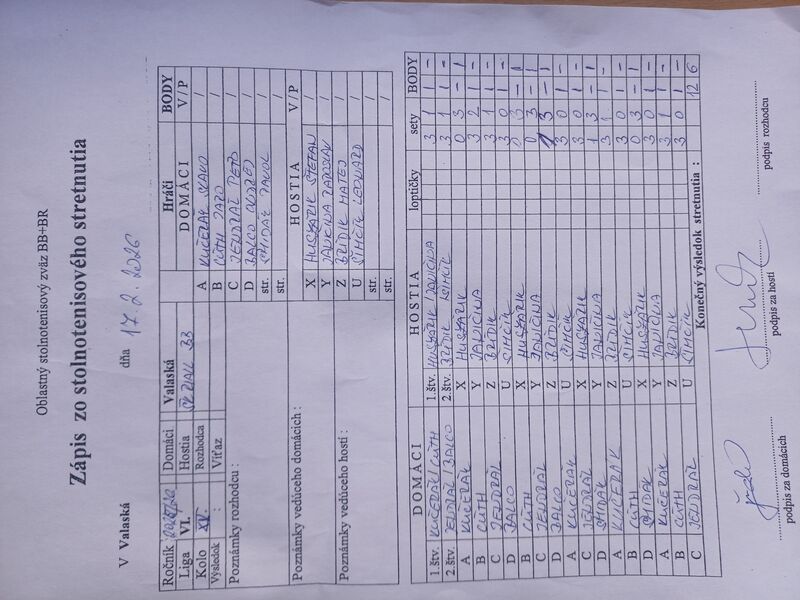 Oblastný stolnotenisový zväz BB+BR
Zápis zo stolnotenisového stretnutia
V Valaská dňa 17.2.2026
Ročník Domáci Valaská
Liga VI. Hostia
Kolo Rozhodca
Výsledok : Víťaz
Poznámky rozhodcu :
Poznámky vedúceho domácich :
Poznámky vedúceho hostí :
Hráči BODY
DOMÁCI V/P
A KUČERÁK /
B CÚTH JAZO /
C JENDRÁĽ PEŤO /
D BALCO ONDREJ /
str. SMIDÁK PAVOL /
str. /
HOSTIA V/P
X HUSZÁRIK ŠTEFAN /
Y JANIČINA JAROSLAV /
Z BRÍDIK MATEJ /
U ŠIMČÍK LEONARD /
str. /
str. /
DOMÁCI HOSTIA loptičky sety BODY
1.štv. KUČERÁK/CÚTH 1.štv. HUSZÁRIK/JANIČINA 3 1 1 -
2.štv. JENDRÁĽ/BALCO 2.štv. BRÍDIK ŠIMČÍK 3 1 1 -
A KUČERÁK X HUSZÁRIK 0 3 - 1
B CÚTH Y JANIČINA 3 2 1 -
C JENDRÁĽ Z BRÍDIK 3 1 1 -
D BALCO U ŠIMČÍK 3 0 1 -
B CÚTH X HUSZÁRIK 0 3 - 1
C JENDRÁĽ Y JANIČINA 0 3 - 1
D BALCO Z BRÍDIK 3 - 1
A KUČERÁK U ŠIMČÍK 3 0 1 -
C JENDRÁĽ X HUSZÁRIK 1 3 - 1
D SMIDÁK Y JANIČINA 3 1 1 -
A KUČERÁK Z BRÍDIK 3 0 1 -
B CÚTH U ŠIMČÍK 0 3 - 1
D SMIDÁK X HUSZÁRIK 3 0 1 -
A KUČERÁK Y JANIČINA 3 1 1 -
B CÚTH Z BRÍDIK 3 0 1 -
C JENDRÁĽ U ŠIMČÍK
Konečný výsledok stretnutia : 12 6
podpis za domácich podpis za hostí podpis rozhodcu